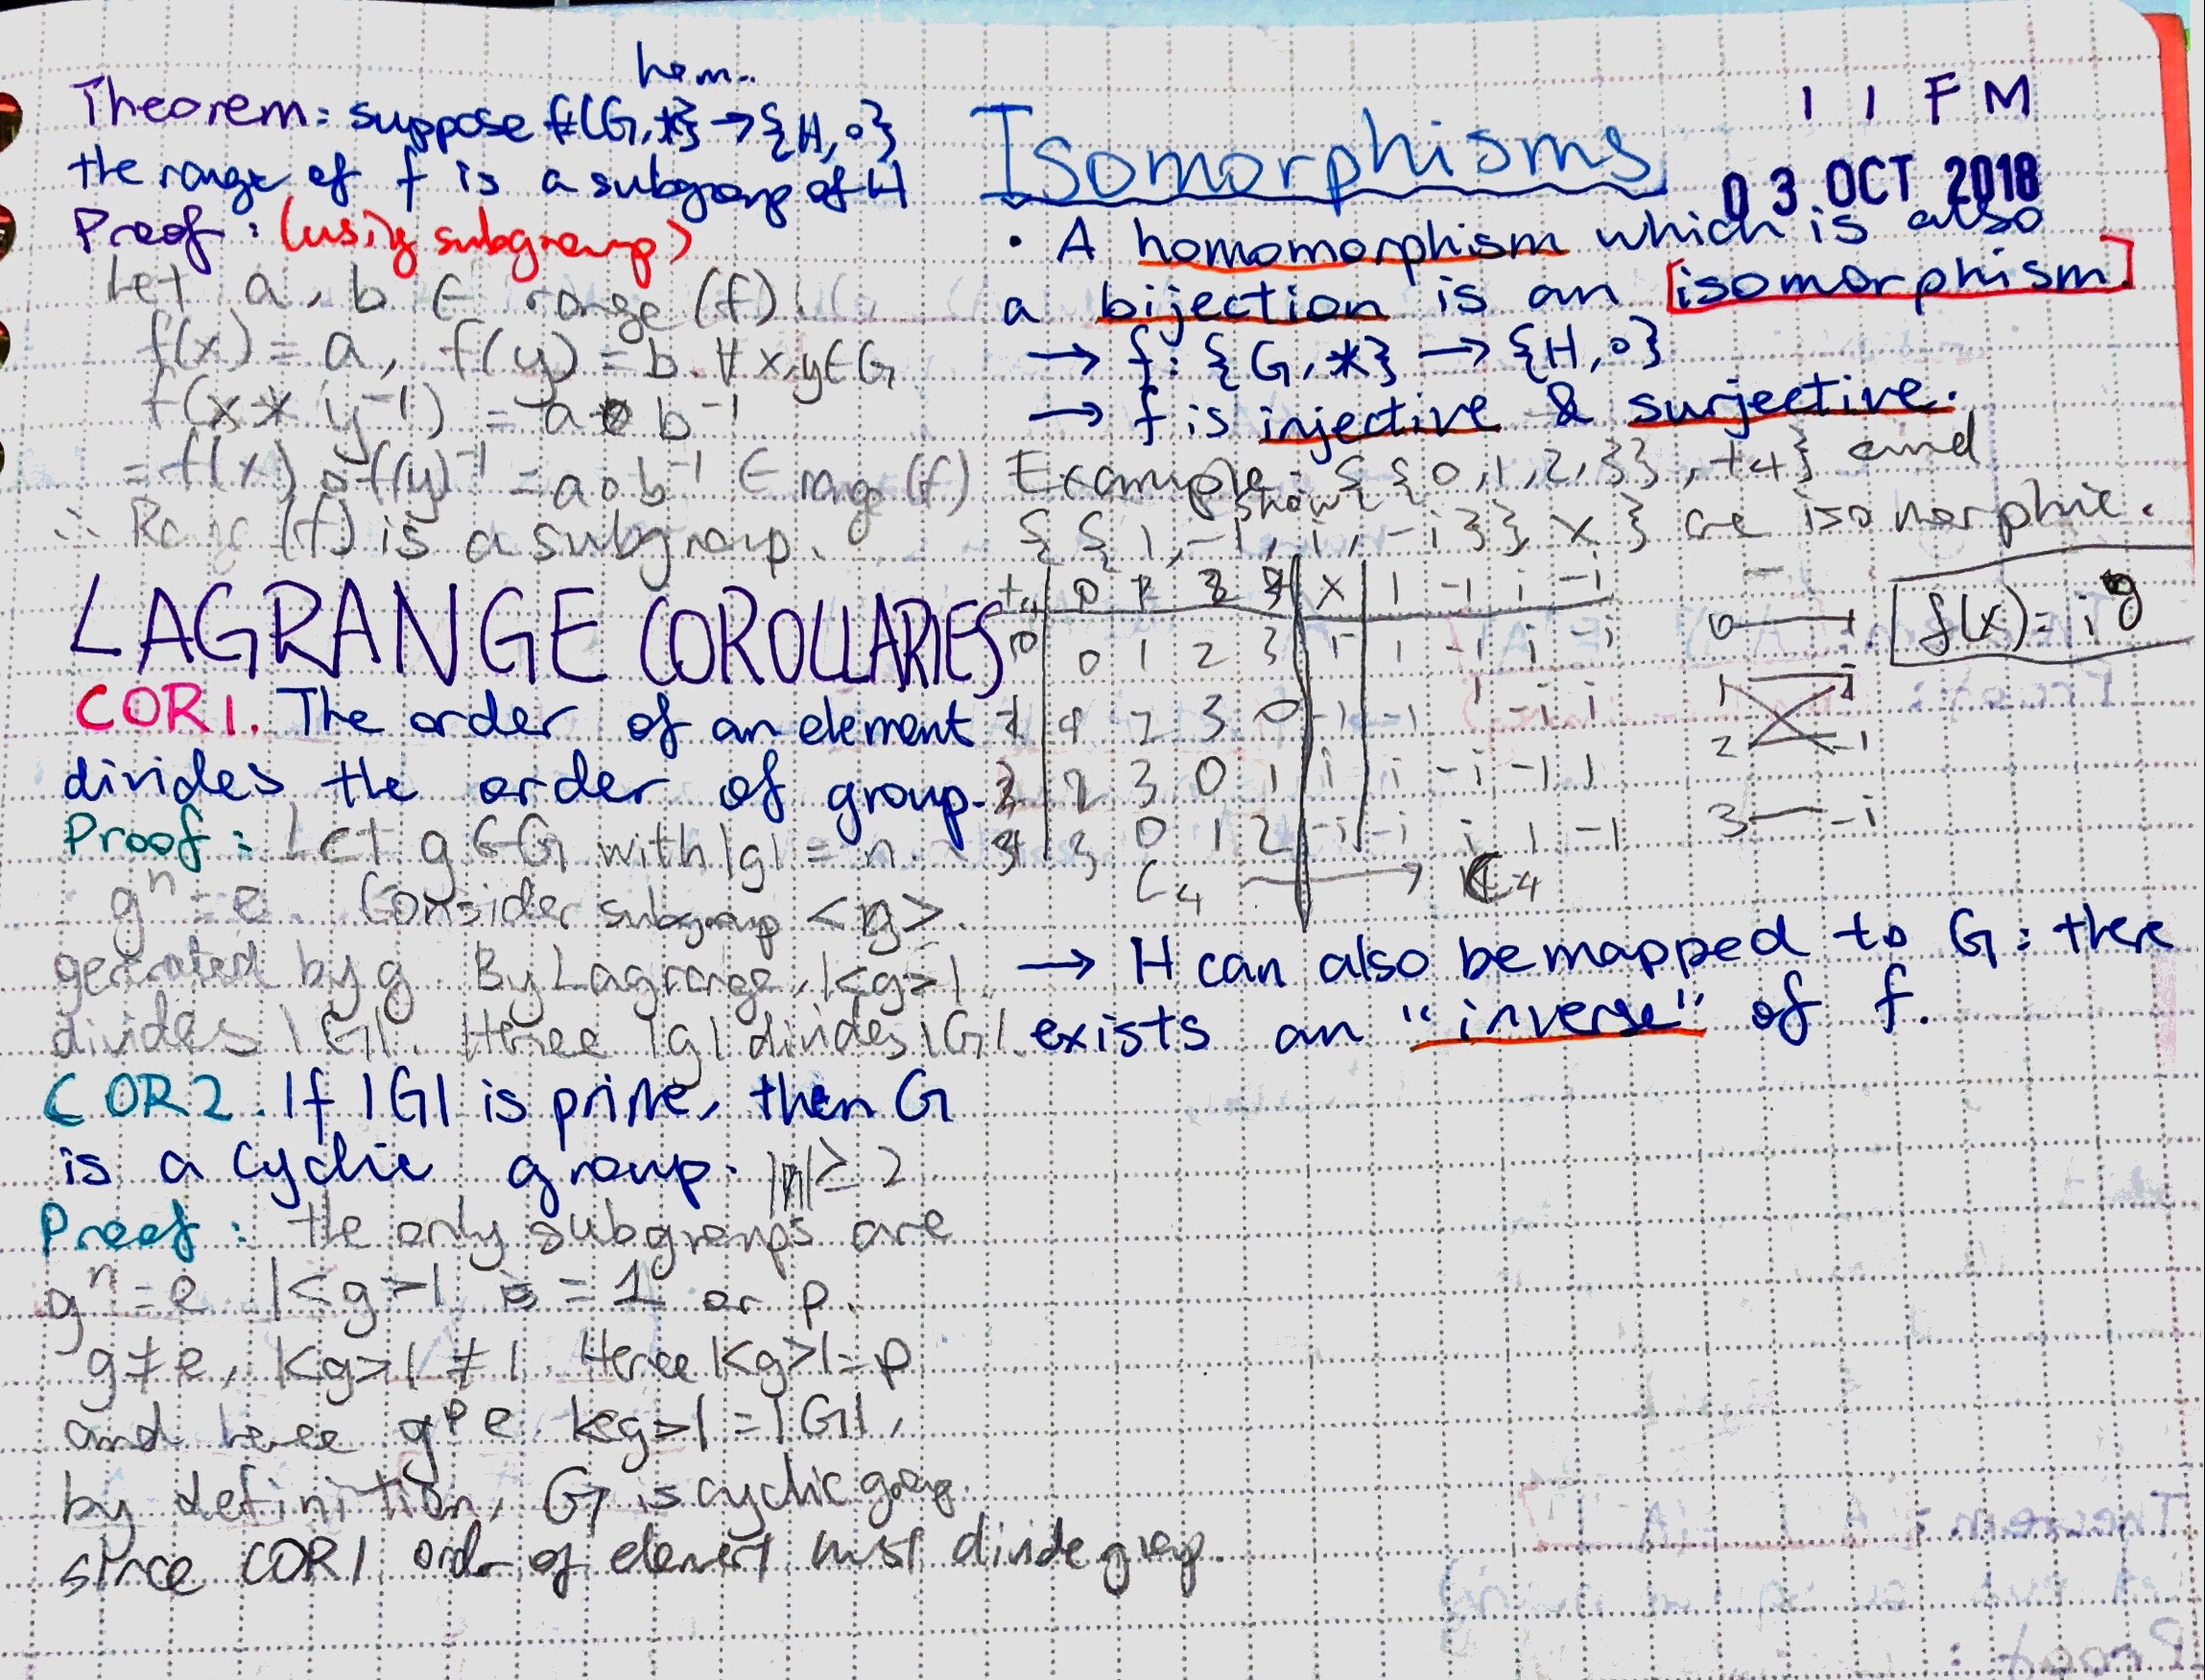 hom.
Theorem: suppose f:{G,*} → {H,∘}
the range of f is a subgroup of H
Proof: (using subgroup)
Let a, b ∈ range (f).
f(x) = a, f(y) = b. ∀ x,y ∈ G
f(x * y⁻¹) = a ∘ b⁻¹
= f(x) ∘ f(y)⁻¹ = a ∘ b⁻¹ ∈ rnge (f)
∴ Range (f) is a subgroup.
LAGRANGE COROLLARIES
COR1. The order of an element
divides the order of group.
Proof: Let g ∈ G with |g| = n.
gⁿ = e. Consider subgroup <g>
generated by g. By Lagrange, |<g>|
divides |G|. Hence |g| divides |G|.
COR2. If |G| is prime, then G
is a cyclic group. |n| ≥ 2
Proof: the only subgroups are
gⁿ = e |<g>| = 1 or p.
g ≠ e, |<g>| ≠ 1. Hence |<g>| = p
and hence gᵖ e. |<g>| = |G|,
by definition, G is cyclic group.
since COR1 order of element must divide group.
11FM
Isomorphisms
03 OCT 2018
• A homomorphism which is also
a bijection is an [isomorphism.]
→ f: {G,*} → {H,∘}
→ f is injective & surjective.
Example: { {0,1,2,3}, +4} and
show
{ { 1,-1,i,-i}} × } are isomorphic.
+4 0 1 2 3 × 1 -1 i -i
0 0 1 2 3 1 1 -1 i -i
1 1 2 3 0 -1 -1 1 -i i
2 2 3 0 1 i i -i -1 1
3 3 0 1 2 -i -i i 1 -1
C₄ → C₄
0 1
1 i
2 -1
3 -i
f(x) = i^g
→ H can also be mapped to G: there
exists an "inverse" of f.